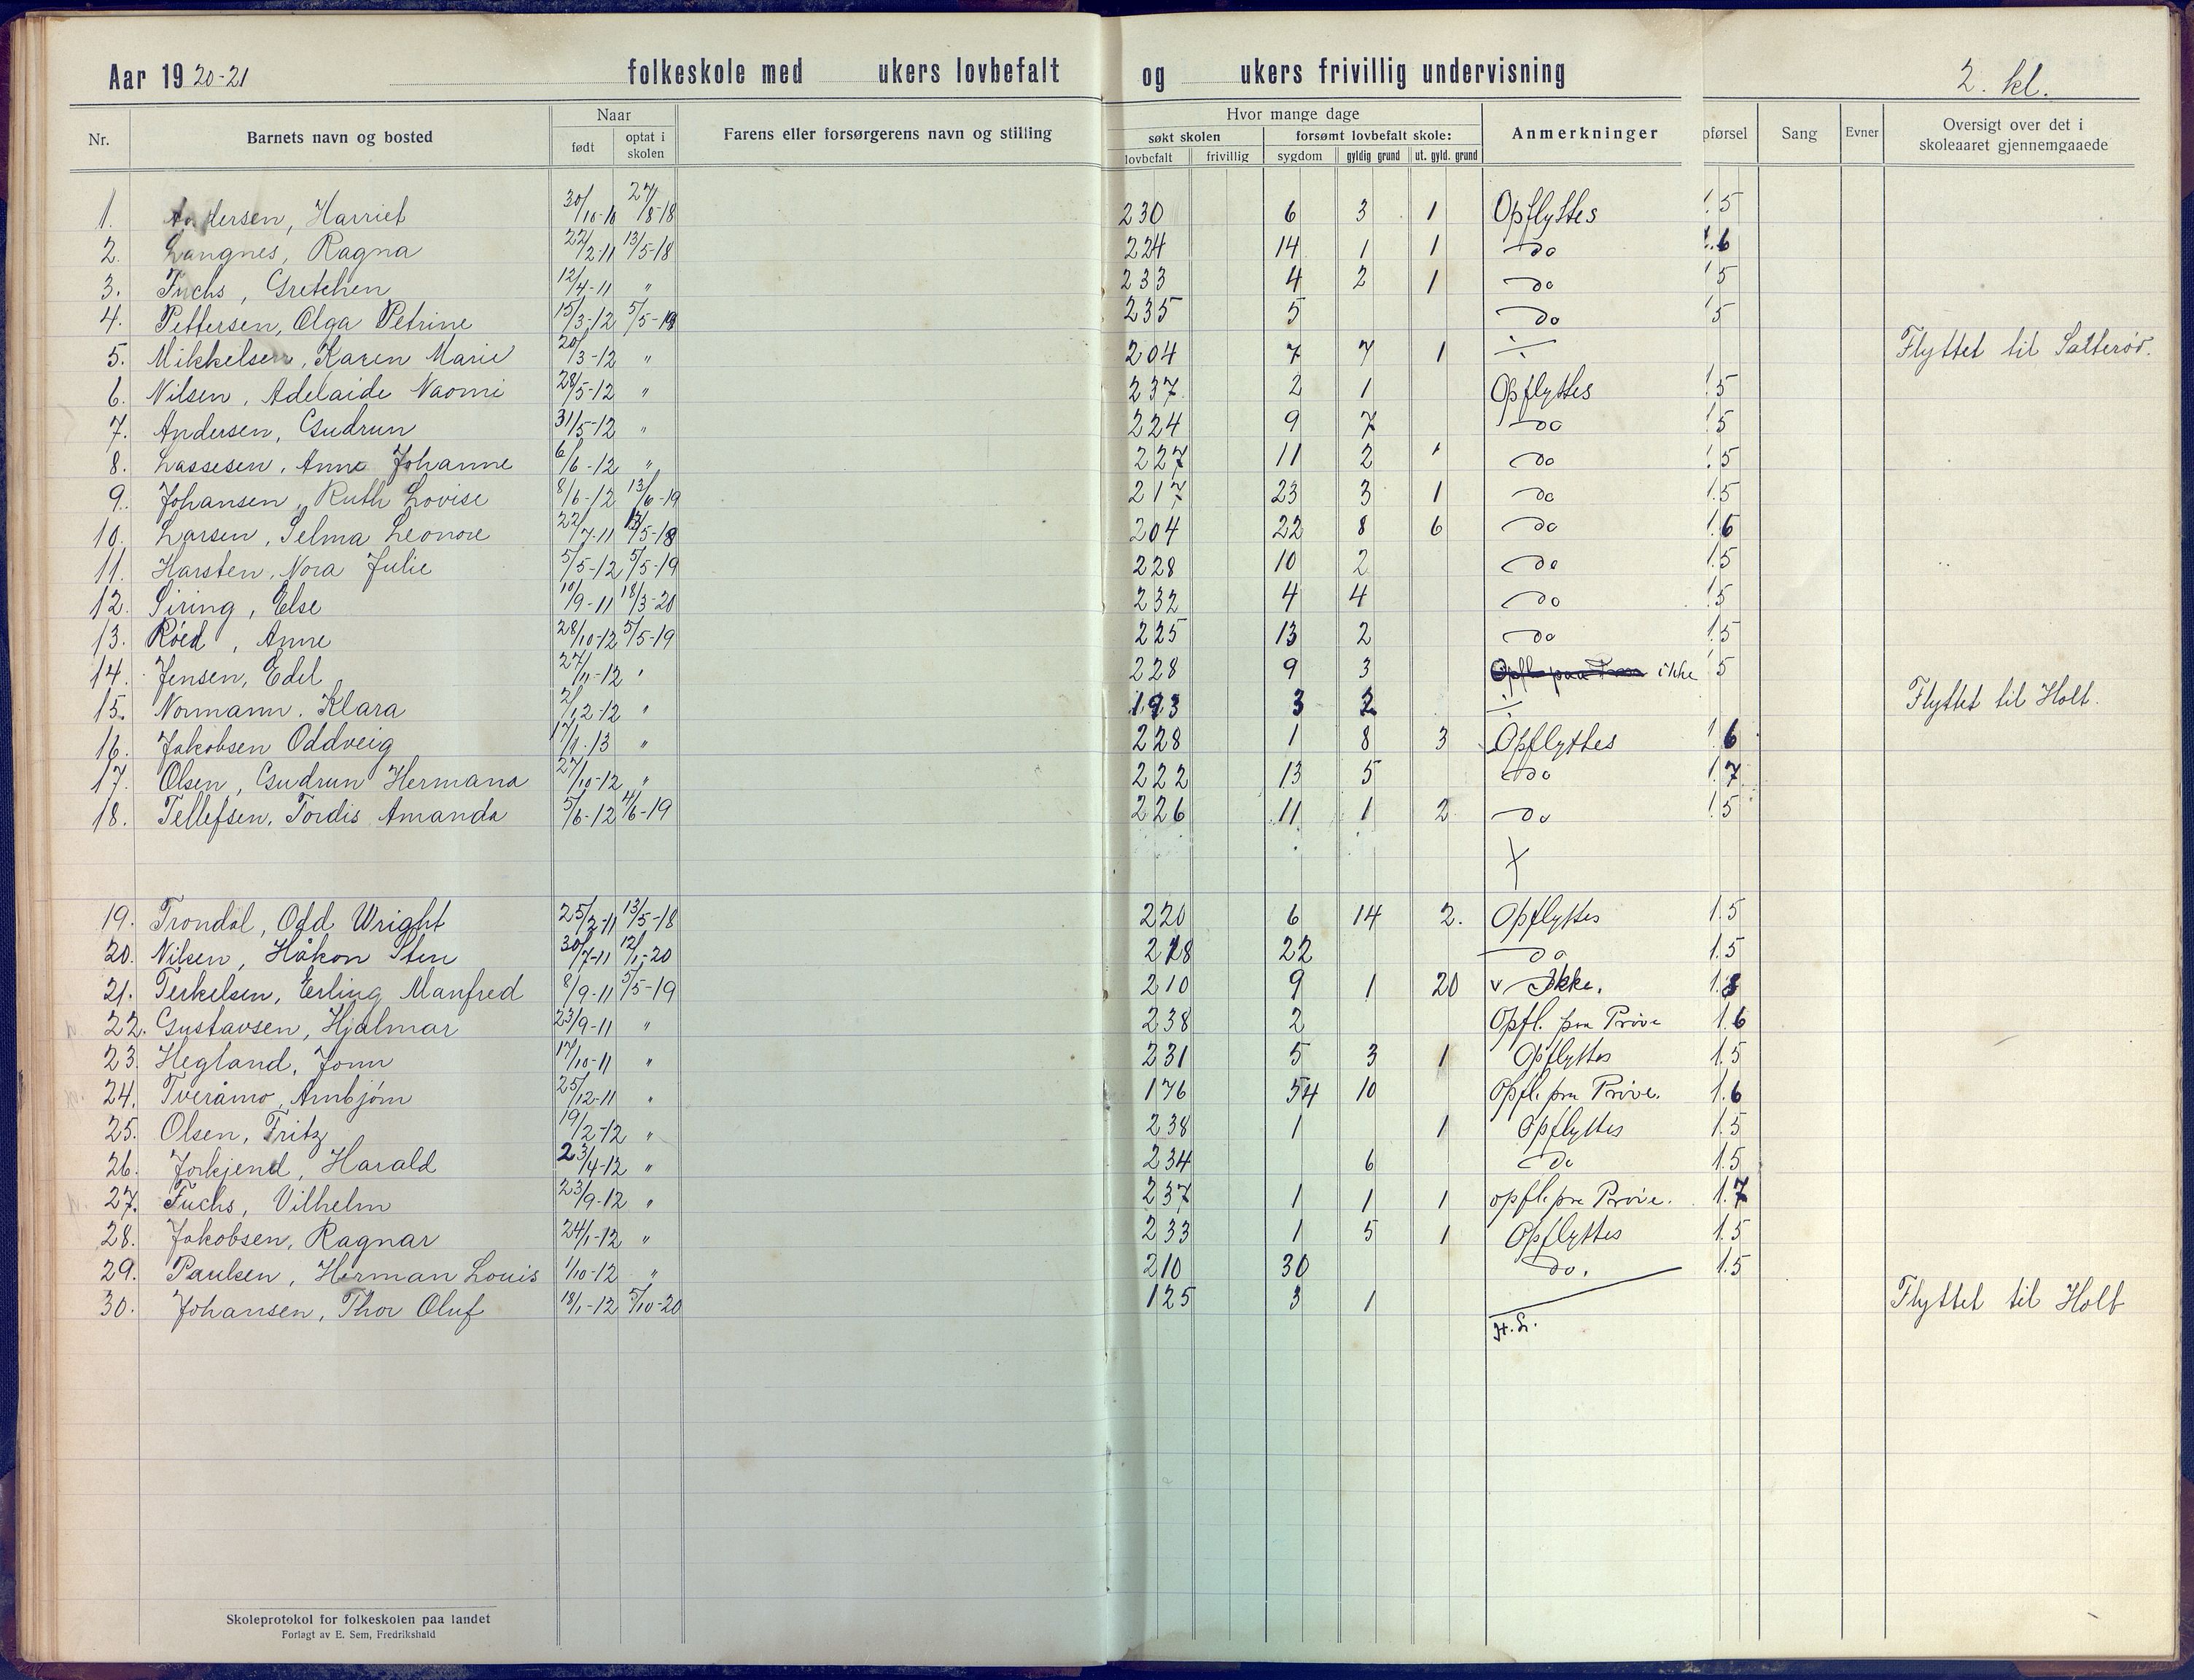 Aar 1920-21 folkeskole med ukers lovbefalt og ukers frivillig undervisning 2. kl.
Nr. Barnets navn og bosted Naar født optat i skolen Farens eller forsørgerens navn og stilling Hvor mange dage søkt skolen lovbefalt frivillig forsømt lovbefalt skole: sygdom gyldig grund ut. gyld. grund Anmerkninger pførsel Sang Evner Oversigt over det i skoleaaret gjennemgaaede
1. Andersen, Harriet 30/10-10 27/8-18 230 6 3 1 Opflyttes 1.5
2. Langnes, Ragna 22/2-11 13/5-18 224 14 1 1 do 1.6
3. Fuchs, Gretchen 12/4-11 " 233 4 2 1 do 1.5
4. Pettersen, Olga Petrine 15/3-12 5/5-19 235 5 do 1.5
5. Mikkelsen, Karen Marie 20/3-12 " 204 7 7 1 ÷ Flyttet til Salterød.
6. Nilsen, Adelaide Naomi 28/5-12 " 237 2 1 Opflyttes 1.5
7. Andersen, Gudrun 31/5-12 " 224 9 7 do 1.5
8. Lassesen, Anne Johanne 6/6-12 " 227 11 2 1 do 1.5
9. Johansen, Ruth Lovise 8/6-12 13/6-19 217 23 3 1 do 1.5
10. Larsen, Selma Leonore 22/7-11 13/5-18 204 22 8 6 do 1.6
11. Harsten, Nora Julie 5/5-12 5/5-19 228 10 2 do 1.5
12. Siring, Else 10/9-11 18/3-20 232 4 4 do 1.5
13. Røed, Anne 28/10-12 5/5-19 225 13 2 do 1.5
14. Jensen, Edel 27/11-12 " 228 9 3 ikke 5
15. Normann, Klara 2/12-12 " 193 3 2 ÷ Flyttet til Holt.
16. Jakobsen Oddveig 17/1-13 " 228 1 8 3 Opflyttes 1.6
17. Olsen, Gudrun Hermana 27/10-12 " 222 13 5 do 1.7
18. Tellefsen, Tordis Amanda 5/6-12 4/6-19 226 11 1 2 do 1.5
19. Trondal, Odd Wright 25/2-11 13/5-18 220 6 14 2. Opflyttes 1.5
20. Nilsen, Håkon Sten 30/7-11 12/1-20 218 22 do 1.5
21. Terkelsen, Erling Manfred 8/9-11 5/5-19 210 9 1 20 v Ikke. 1.8
22. Gustavsen, Hjalmar 23/9-11 " 238 2 Opfl. paa Prøve 1.6
23. Hegland, Jonn 17/10-11 " 231 5 3 1 Opflyttes 1.5
24. Tveråmo, Arnbjørn 25/12-11 " 176 54 10 Opfl. paa Prøve. 1.6
25. Olsen, Fritz 19/2-12 " 238 1 1 Opflyttes 1.5
26. Jorkjend, Harald 23/4-12 " 234 6 do 1.5
27. Fuchs, Vilhelm 23/9-12 " 237 1 1 1 opfl. paa Prøve. 1.7
28. Jakobsen, Ragnar 24/1-12 " 233 1 5 1 Opflyttes 1.5
29. Paulsen, Herman Louis 1/10-12 " 210 30 do. 1.5
30. Johansen, Thor Oluf 18/1-12 5/10-20 125 3 1 Flyttet til Holt
Skoleprotokol for folkeskolen paa landet
Forlagt av E. Sem, Fredrikshald